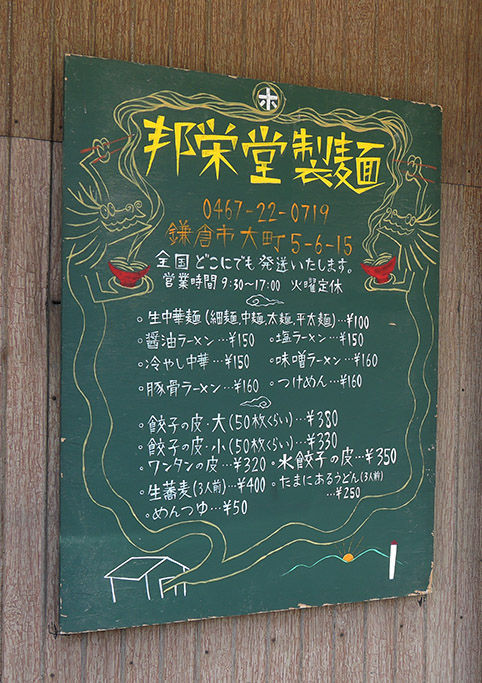 ホ
邦栄堂製麺
0467-22-0719
鎌倉市大町5-6-15
全国どこにでも発送いたします。
営業時間 9:30〜17:00 火曜定休
○生中華麺(細麺,中麺,太麺,平太麺)…¥100
○醤油ラーメン…¥150 ○塩ラーメン…¥150
○冷やし中華…¥150 ○味噌ラーメン…¥160
○豚骨ラーメン…¥160 ○つけめん…¥160
○餃子の皮・大(50枚くらい)…¥380
○餃子の皮・小(50枚くらい)…¥330
○ワンタンの皮…¥320 ○水餃子の皮…¥350
○生蕎麦(3人前)…¥400 ○たまにあるうどん(3人前)
…¥250
○めんつゆ…¥50